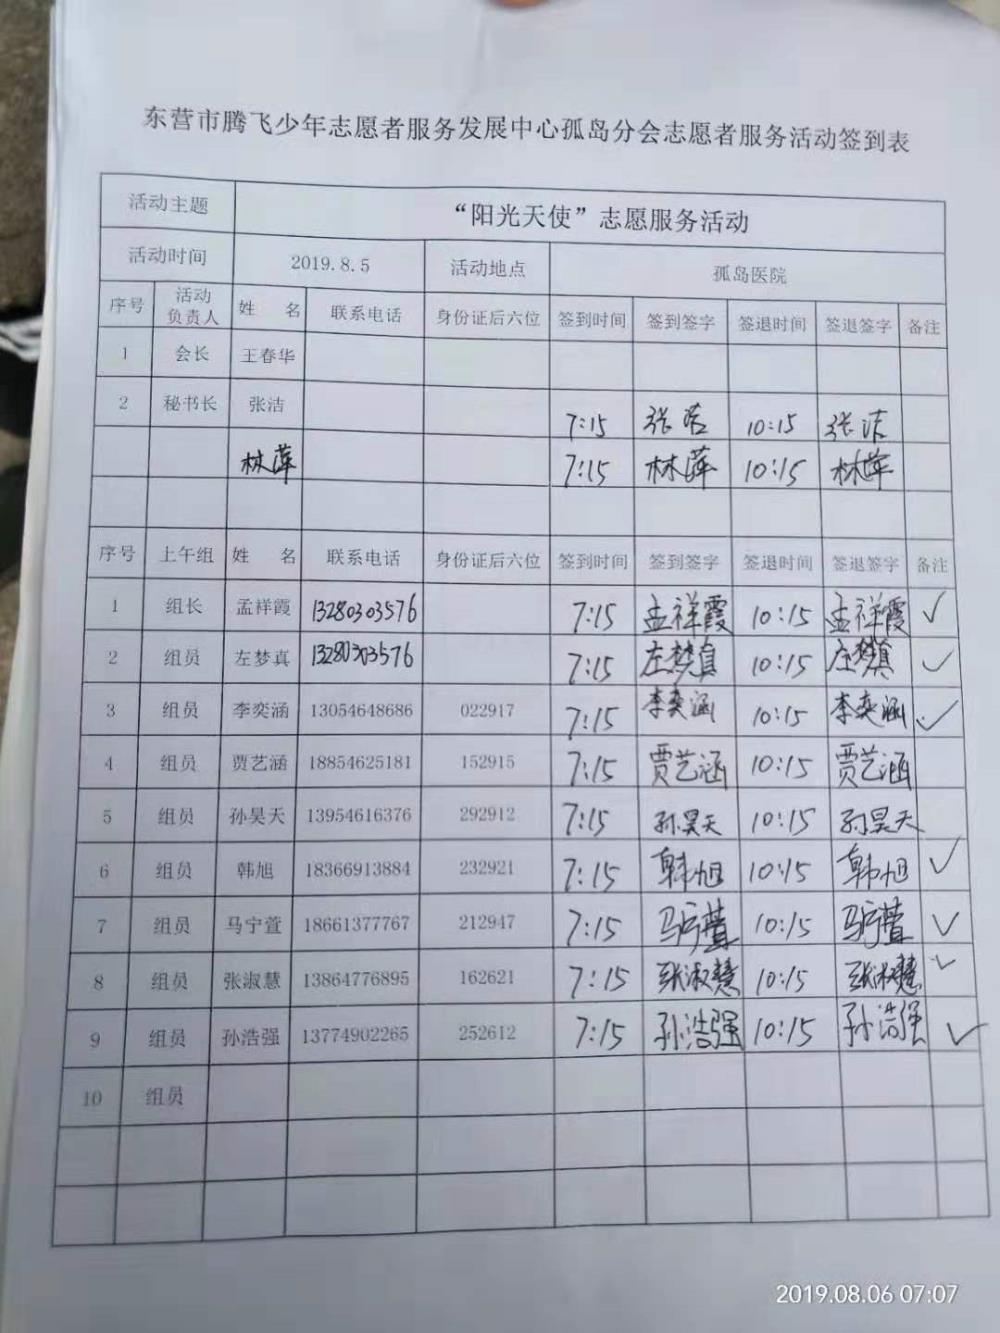 东营市腾飞少年志愿者服务发展中心孤岛分会志愿者服务活动签到表
活动主题 “阳光天使”志愿服务活动
活动时间 2019.8.5 活动地点 孤岛医院
序号 活动负责人 姓 名 联系电话 身份证后六位 签到时间 签到签字 签退时间 签退签字 备注
1 会长 王春华
2 秘书长 张洁 7:15 张洁 10:15 张洁
林萍 7:15 林萍 10:15 林萍
序号 上午组 姓 名 联系电话 身份证后六位 签到时间 签到签字 签退时间 签退签字 备注
1 组长 孟祥霞 13280303576 7:15 孟祥霞 10:15 孟祥霞 ✓
2 组员 左梦真 13280303576 7:15 左梦真 10:15 左梦真 ✓
3 组员 李奕涵 13054648686 022917 7:15 李奕涵 10:15 李奕涵 ✓
4 组员 贾艺涵 18854625181 152915 7:15 贾艺涵 10:15 贾艺涵
5 组员 孙昊天 13954616376 292912 7:15 孙昊天 10:15 孙昊天
6 组员 韩旭 18366913884 232921 7:15 韩旭 10:15 韩旭 ✓
7 组员 马宁萱 18661377767 212947 7:15 马宁萱 10:15 马宁萱 ✓
8 组员 张淑慧 13864776895 162621 7:15 张淑慧 10:15 张淑慧 ✓
9 组员 孙浩强 13774902265 252612 7:15 孙浩强 10:15 孙浩强 ✓
10 组员
2019.08.06 07:07